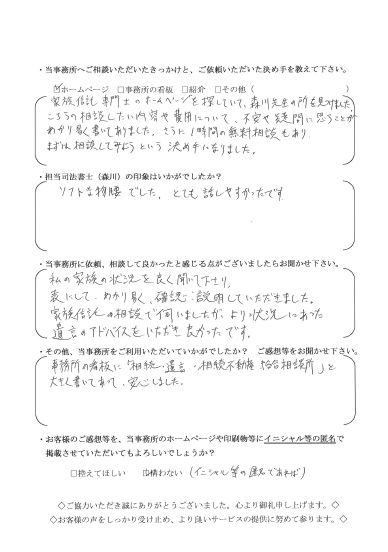 ・当事務所へご相談いただいたきっかけと、ご依頼いただいた決め手を教えて下さい。
☑ホームページ □事務所の看板 □紹介 □その他（ ）
家族信託専門士のホームページを探していて、森川先生の所を見つけました。
こちらの相談したい内容や費用について、不安や疑問に思うことが
わかり易く書いてありました。さらに1時間の無料相談もあり、
まずは相談してみようという決め手になりました。
・担当司法書士（森川）の印象はいかがでしたか？
ソフトな物腰でした。とても話しやすかったです
・当事務所に依頼、相談して良かったと感じる点がございましたらお聞かせ下さい。
私の家族の状況を良く聞いて下さり、
表にして、わかり易く、確認、説明していただきました。
家族信託の相談で伺いましたが、より状況にあった
遺言のアドバイスをいただき良かったです。
・その他、当事務所をご利用いただいていかがでしたか？ ご感想等をお聞かせ下さい。
事務所の看板に「相続・遺言・相続不動産 総合相談所」と
大きく書いてあって、安心しました。
・お客様のご感想等を、当事務所のホームページや印刷物等にイニシャル等の匿名で
掲載させていただいてもよろしいでしょうか？
□控えてほしい ☑構わない（イニシャル等の匿名であれば）
◇ご協力いただき誠にありがとうございました。心より御礼申し上げます。◇
◇お客様の声をしっかり受け止め、より良いサービスの提供に努めて参ります。◇